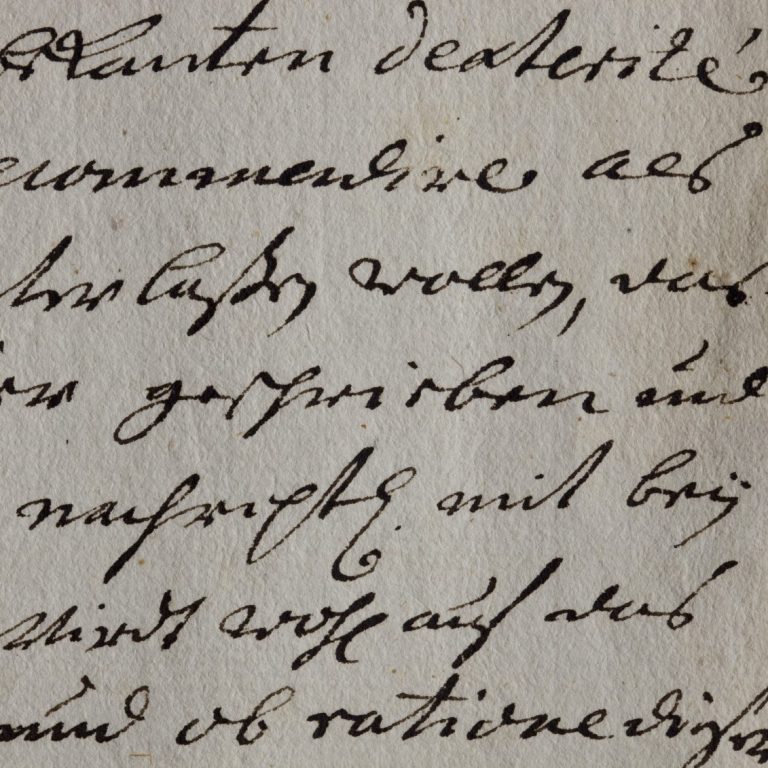 bekanten dexterité
ecommendire als
ter laßen wollen, das
er geschrieben und
nachricht mit beÿ
wirdt wohl auf das
und ob rationediser